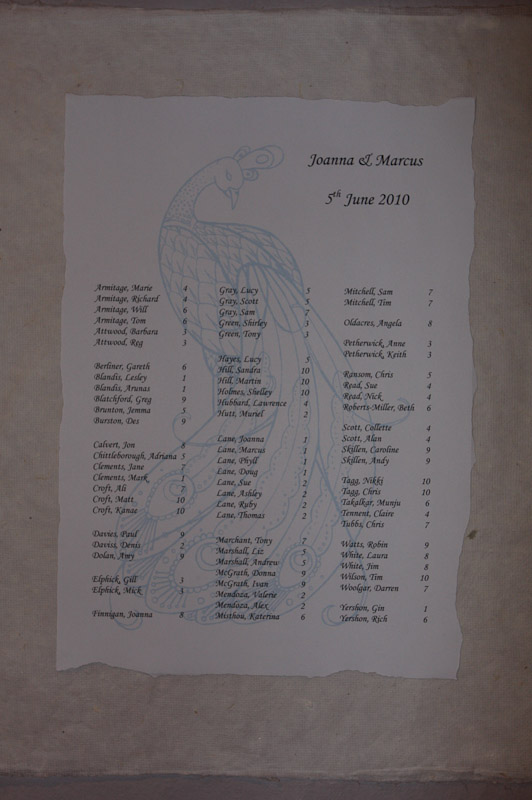 Joanna & Marcus
5th June 2010
Armitage, Marie 4
Armitage, Richard 4
Armitage, Will 6
Armitage, Tom 6
Attwood, Barbara 3
Attwood, Reg 3
Berliner, Gareth 6
Blandis, Lesley 1
Blandis, Arunas 1
Blatchford, Greg 9
Brunton, Jemma 5
Burston, Des 9
Calvert, Jon 8
Chittleborough, Adriana 5
Clements, Jane 7
Clements, Mark 1
Croft, Ali 7
Croft, Matt 10
Croft, Kanae 10
Davies, Paul 9
Daviss, Denis 2
Dolan, Amy 9
Elphick, Gill 3
Elphick, Mick 3
Finnigan, Joanna 8
Gray, Lucy 5
Gray, Scott 5
Gray, Sam 7
Green, Shirley 3
Green, Tony 3
Hayes, Lucy 5
Hill, Sandra 10
Hill, Martin 10
Holmes, Shelley 10
Hubbard, Lawrence 4
Hutt, Muriel 2
Lane, Joanna 1
Lane, Marcus 1
Lane, Phyll 1
Lane, Doug 1
Lane, Sue 2
Lane, Ashley 2
Lane, Ruby 2
Lane, Thomas 2
Marchant, Tony 7
Marshall, Liz 5
Marshall, Andrew 5
McGrath, Donna 9
McGrath, Ivan 9
Mendoza, Valerie 2
Mendoza, Alex 2
Misthou, Katerina 6
Mitchell, Sam 7
Mitchell, Tim 7
Oldacres, Angela 8
Petherwick, Anne 3
Petherwick, Keith 3
Ransom, Chris 5
Read, Sue 4
Read, Nick 4
Roberts-Miller, Beth 6
Scott, Collette 4
Scott, Alan 4
Skillen, Caroline 9
Skillen, Andy 9
Tagg, Nikki 10
Tagg, Chris 10
Takalkar, Munju 6
Tennent, Claire 4
Tubbs, Chris 7
Watts, Robin 9
White, Laura 8
White, Jim 8
Wilson, Tim 10
Woolgar, Darren 7
Yershon, Gin 1
Yershon, Rich 6